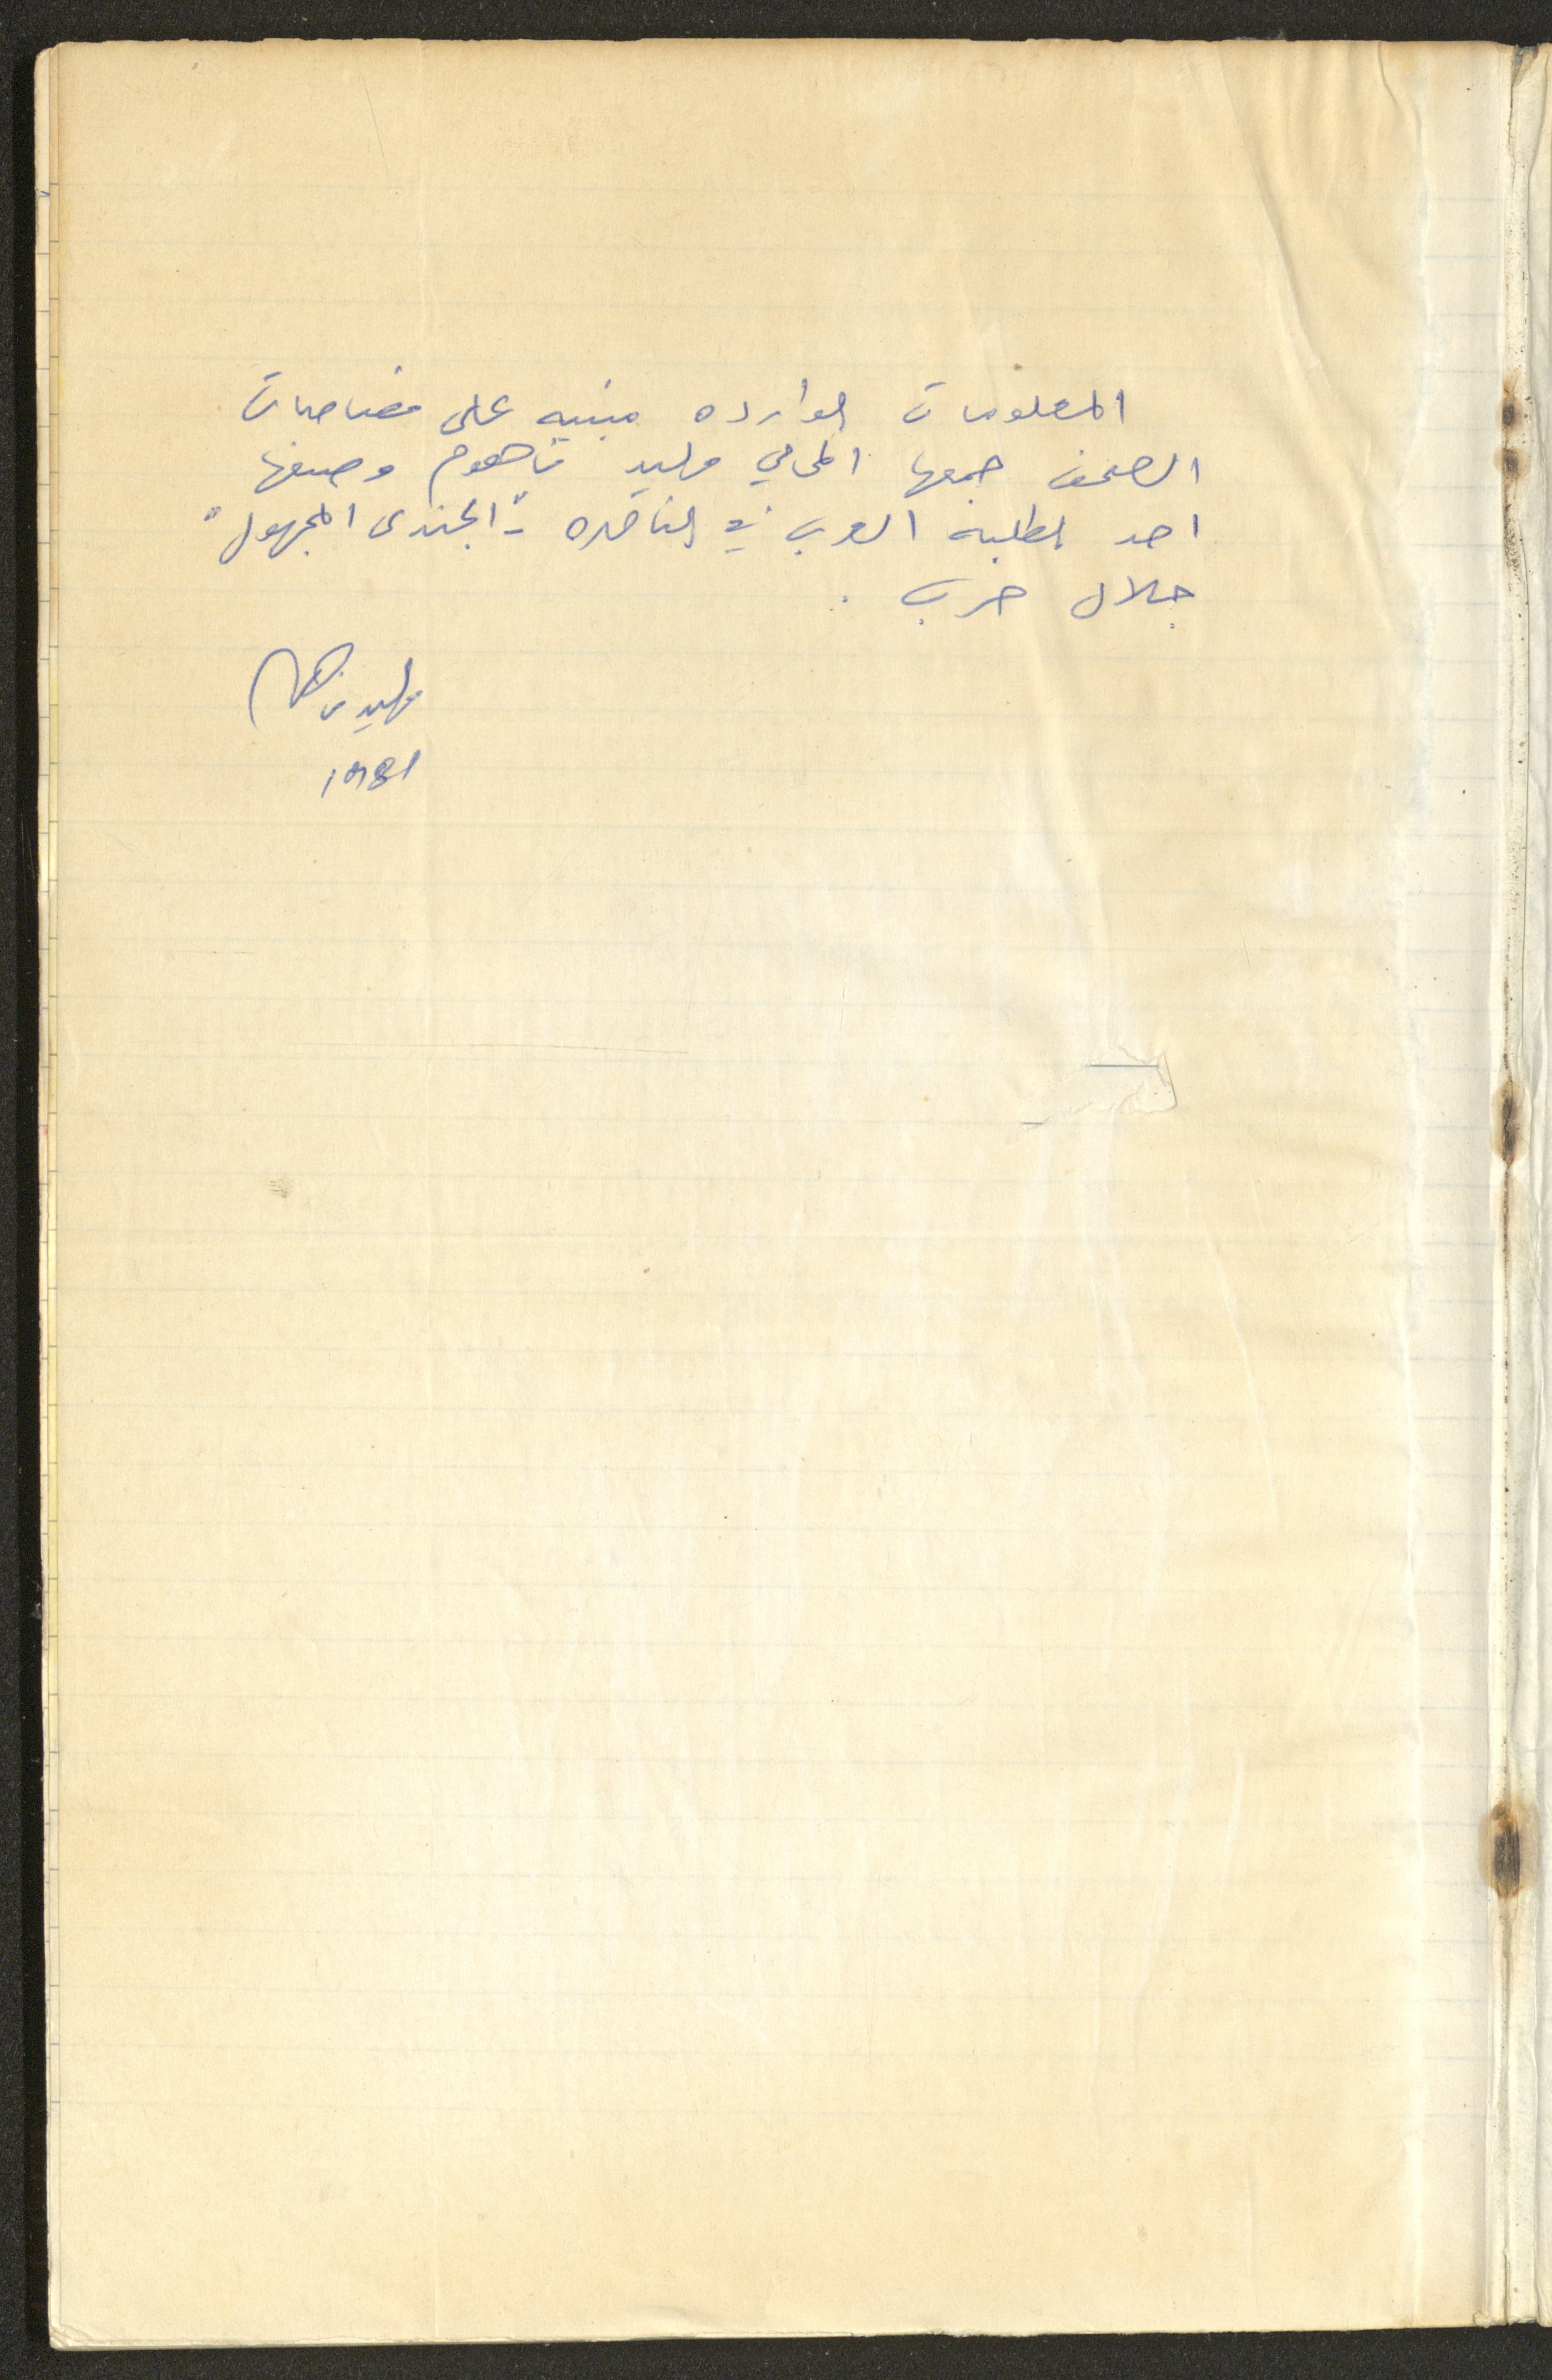 المعلومات الوارده مبنيه على قصاصات
الصحف جمعها المحامي وليد فاهوم وصنفها
احد الطلبة العرب في الناصره - "الجندى المجهول"
جلال حرب .
وليد فاهوم
1981